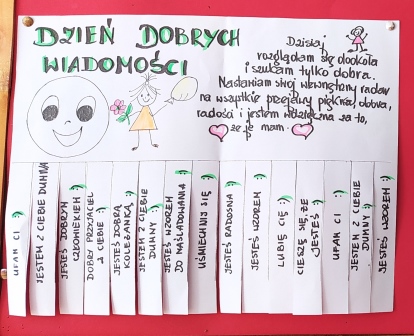 DZIEŃ DOBRYCH
WIADOMOŚCI
Dzisiaj
rozglądam się dookoła
i szukam tylko dobra.
Nastawiam swój wewnętrzny radar
na wszystkie przejawy piękna, dobra,
radości i jestem wdzięczna za to,
że je mam.
UFAM CI :)
JESTEM Z CIEBIE DUMNA
JESTEŚ DOBRYM
CZŁOWIEKIEM :)
DOBRY PRZYJACIEL
Z CIEBIE :)
JESTEŚ DOBRĄ
KOLEŻANKĄ :)
JESTEM Z CIEBIE
DUMNY :)
JESTEŚ WZOREM
DO NAŚLADOWANIA :)
UŚMIECHNIJ SIĘ :)
JESTEŚ RADOSNA :)
JESTEŚ WZOREM :)
LUBIĘ CIĘ :)
CIESZĘ SIĘ, ŻE
JESTEŚ :)
UFAM CI :)
JESTEM Z CIEBIE
DUMNY :)
JESTEŚ WZOREM :)